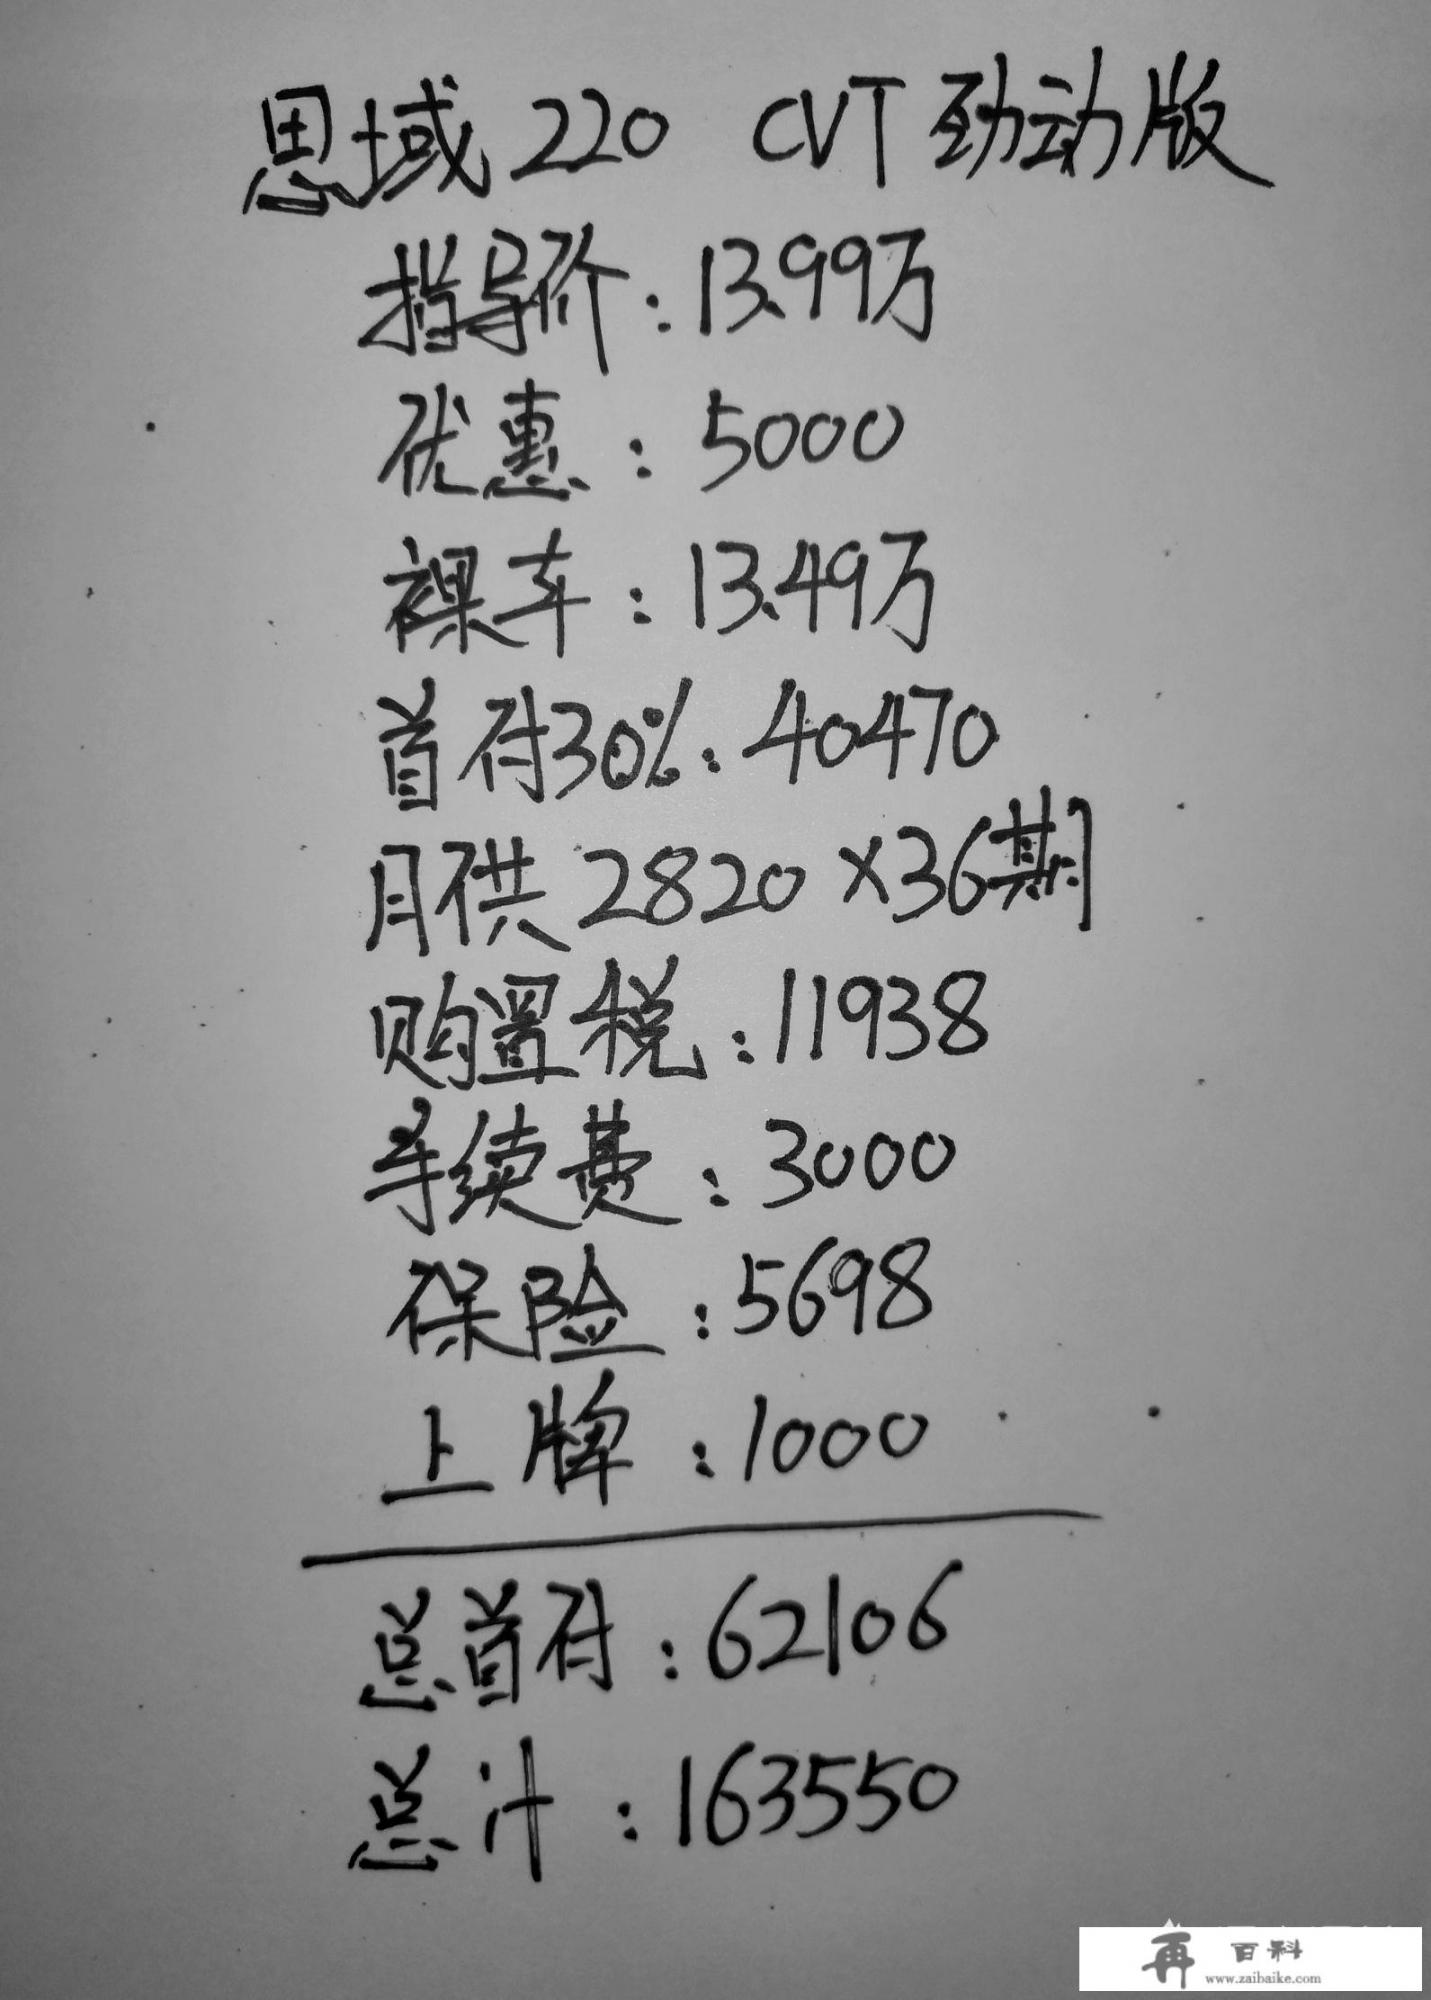 思域220 CVT劲动版
指导价:13.99万
优惠:5000
裸车:13.49万
首付30%:40470
月供2820×36期
购置税:11938
手续费:3000
保险:5698
上牌:1000
总首付:62106
总计:163550
再 百科
www.zaibaike.com